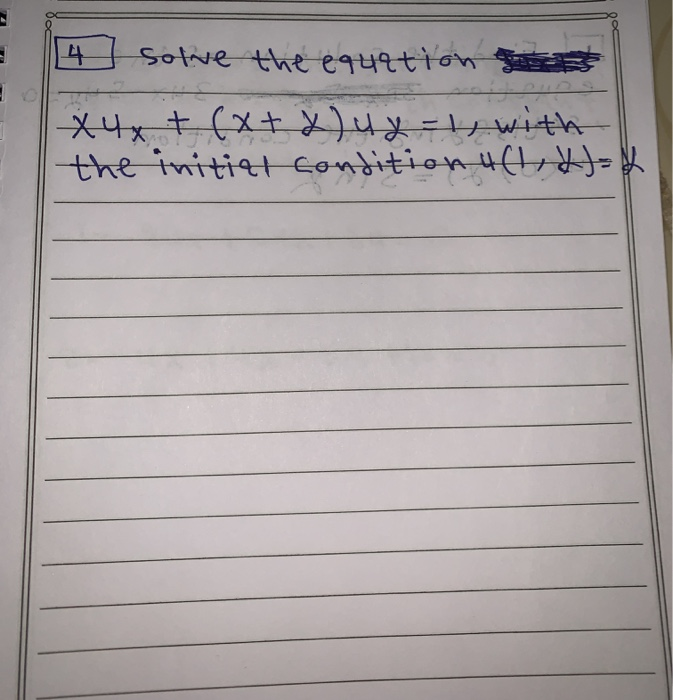 4 Solve the equation
xux + (x+y)uy = 1, with
the initial condition u(1, y) = y